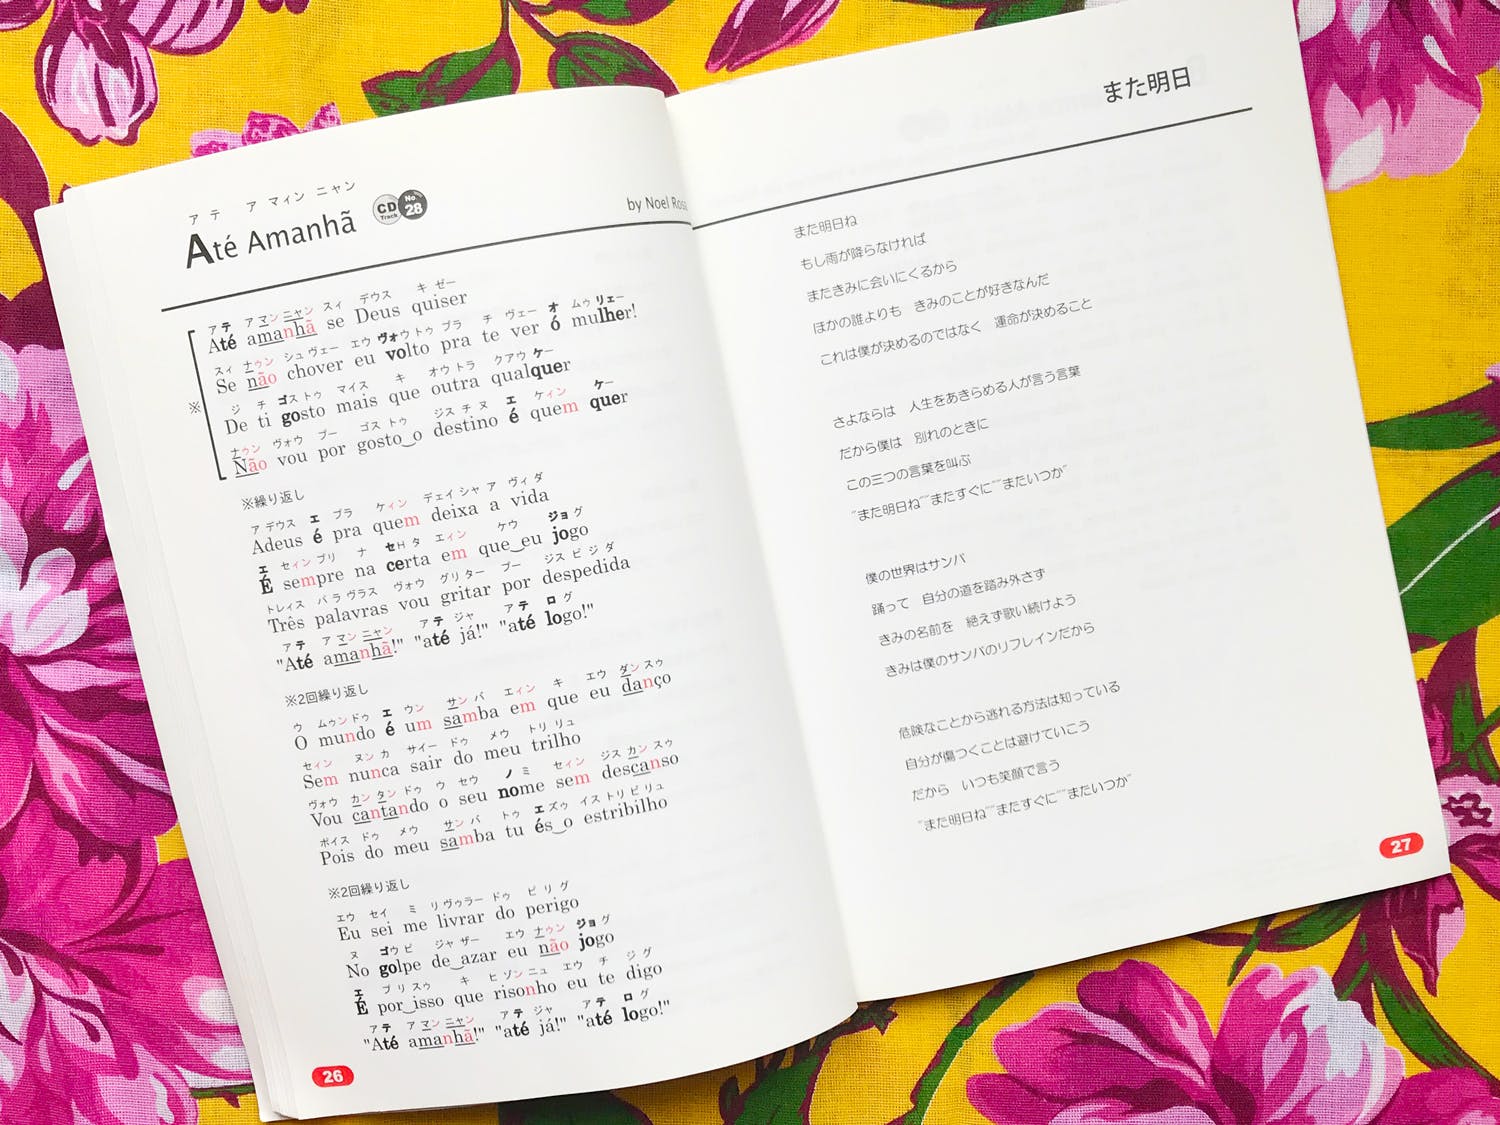 アテ アマィンニャン
Até Amanhã
CD Track No 28
by Noel Rosa
アテ アマンニャン スィ デウス キゼー
Até amanhã se Deus quiser
スィ ナゥン シュヴェー エウ ヴォウトゥ プラ チ ヴェー オ ムゥリェー
Se não chover eu volto pra te ver ó mulher!
ジ チ ゴストゥ マイス キ オウトラ クアウケー
De ti gosto mais que outra qualquer
ナゥン ヴォウ プー ゴストゥ ジスチヌ エ ケィン ケー
Não vou por gosto‿o destino é quem quer
※
※繰り返し
アデウス エ プラ ケィン デェイシャ ア ヴィダ
Adeus é pra quem deixa a vida
エ セィンプリ ナ セHタ エィン ケウ ジョグ
É sempre na certa em que‿eu jogo
トレイス パラヴラス ヴォウ グリター プー ジスピジダ
Três palavras vou gritar por despedida
アテ アマンニャン アテ ジャ アテ ログ
"Até amanhã!" "até já!" "até logo!"
※2回繰り返し
ウ ムゥンドゥ エ ウン サンバ エィン キ エウ ダンスゥ
O mundo é um samba em que eu danço
セィン ヌンカ サイー ドゥ メウ トリリュ
Sem nunca sair do meu trilho
ヴォウ カンタンドゥ ウ セウ ノミ セィン ジスカンスゥ
Vou cantando o seu nome sem descanso
ポイス ドゥ メウ サンバ トゥ エズゥ イストリビリュ
Pois do meu samba tu és‿o estribilho
※2回繰り返し
エウ セイ ミ リヴゥラー ドゥ ピリグ
Eu sei me livrar do perigo
ヌ ゴウピ ジャザー エウ ナゥン ジョグ
No golpe de‿azar eu não jogo
エ プリスゥ キ ヒゾンニュ エウ チ ジグ
É por‿isso que risonho eu te digo
アテ アマンニャン アテ ジャ アテ ログ
"Até amanhã!" "até já!" "até logo!"
26
また明日
また明日ね
もし雨が降らなければ
またきみに会いにくるから
ほかの誰よりも きみのことが好きなんだ
これは僕が決めるのではなく 運命が決めること
さよならは 人生をあきらめる人が言う言葉
だから僕は 別れのときに
この三つの言葉を叫ぶ
"また明日ね""またすぐに""またいつか"
僕の世界はサンバ
踊って 自分の道を踏み外さず
きみの名前を 絶えず歌い続けよう
きみは僕のサンバのリフレインだから
危険なことから逃れる方法は知っている
自分が傷つくことは避けていこう
だから いつも笑顔で言う
"また明日ね""またすぐに""またいつか"
27